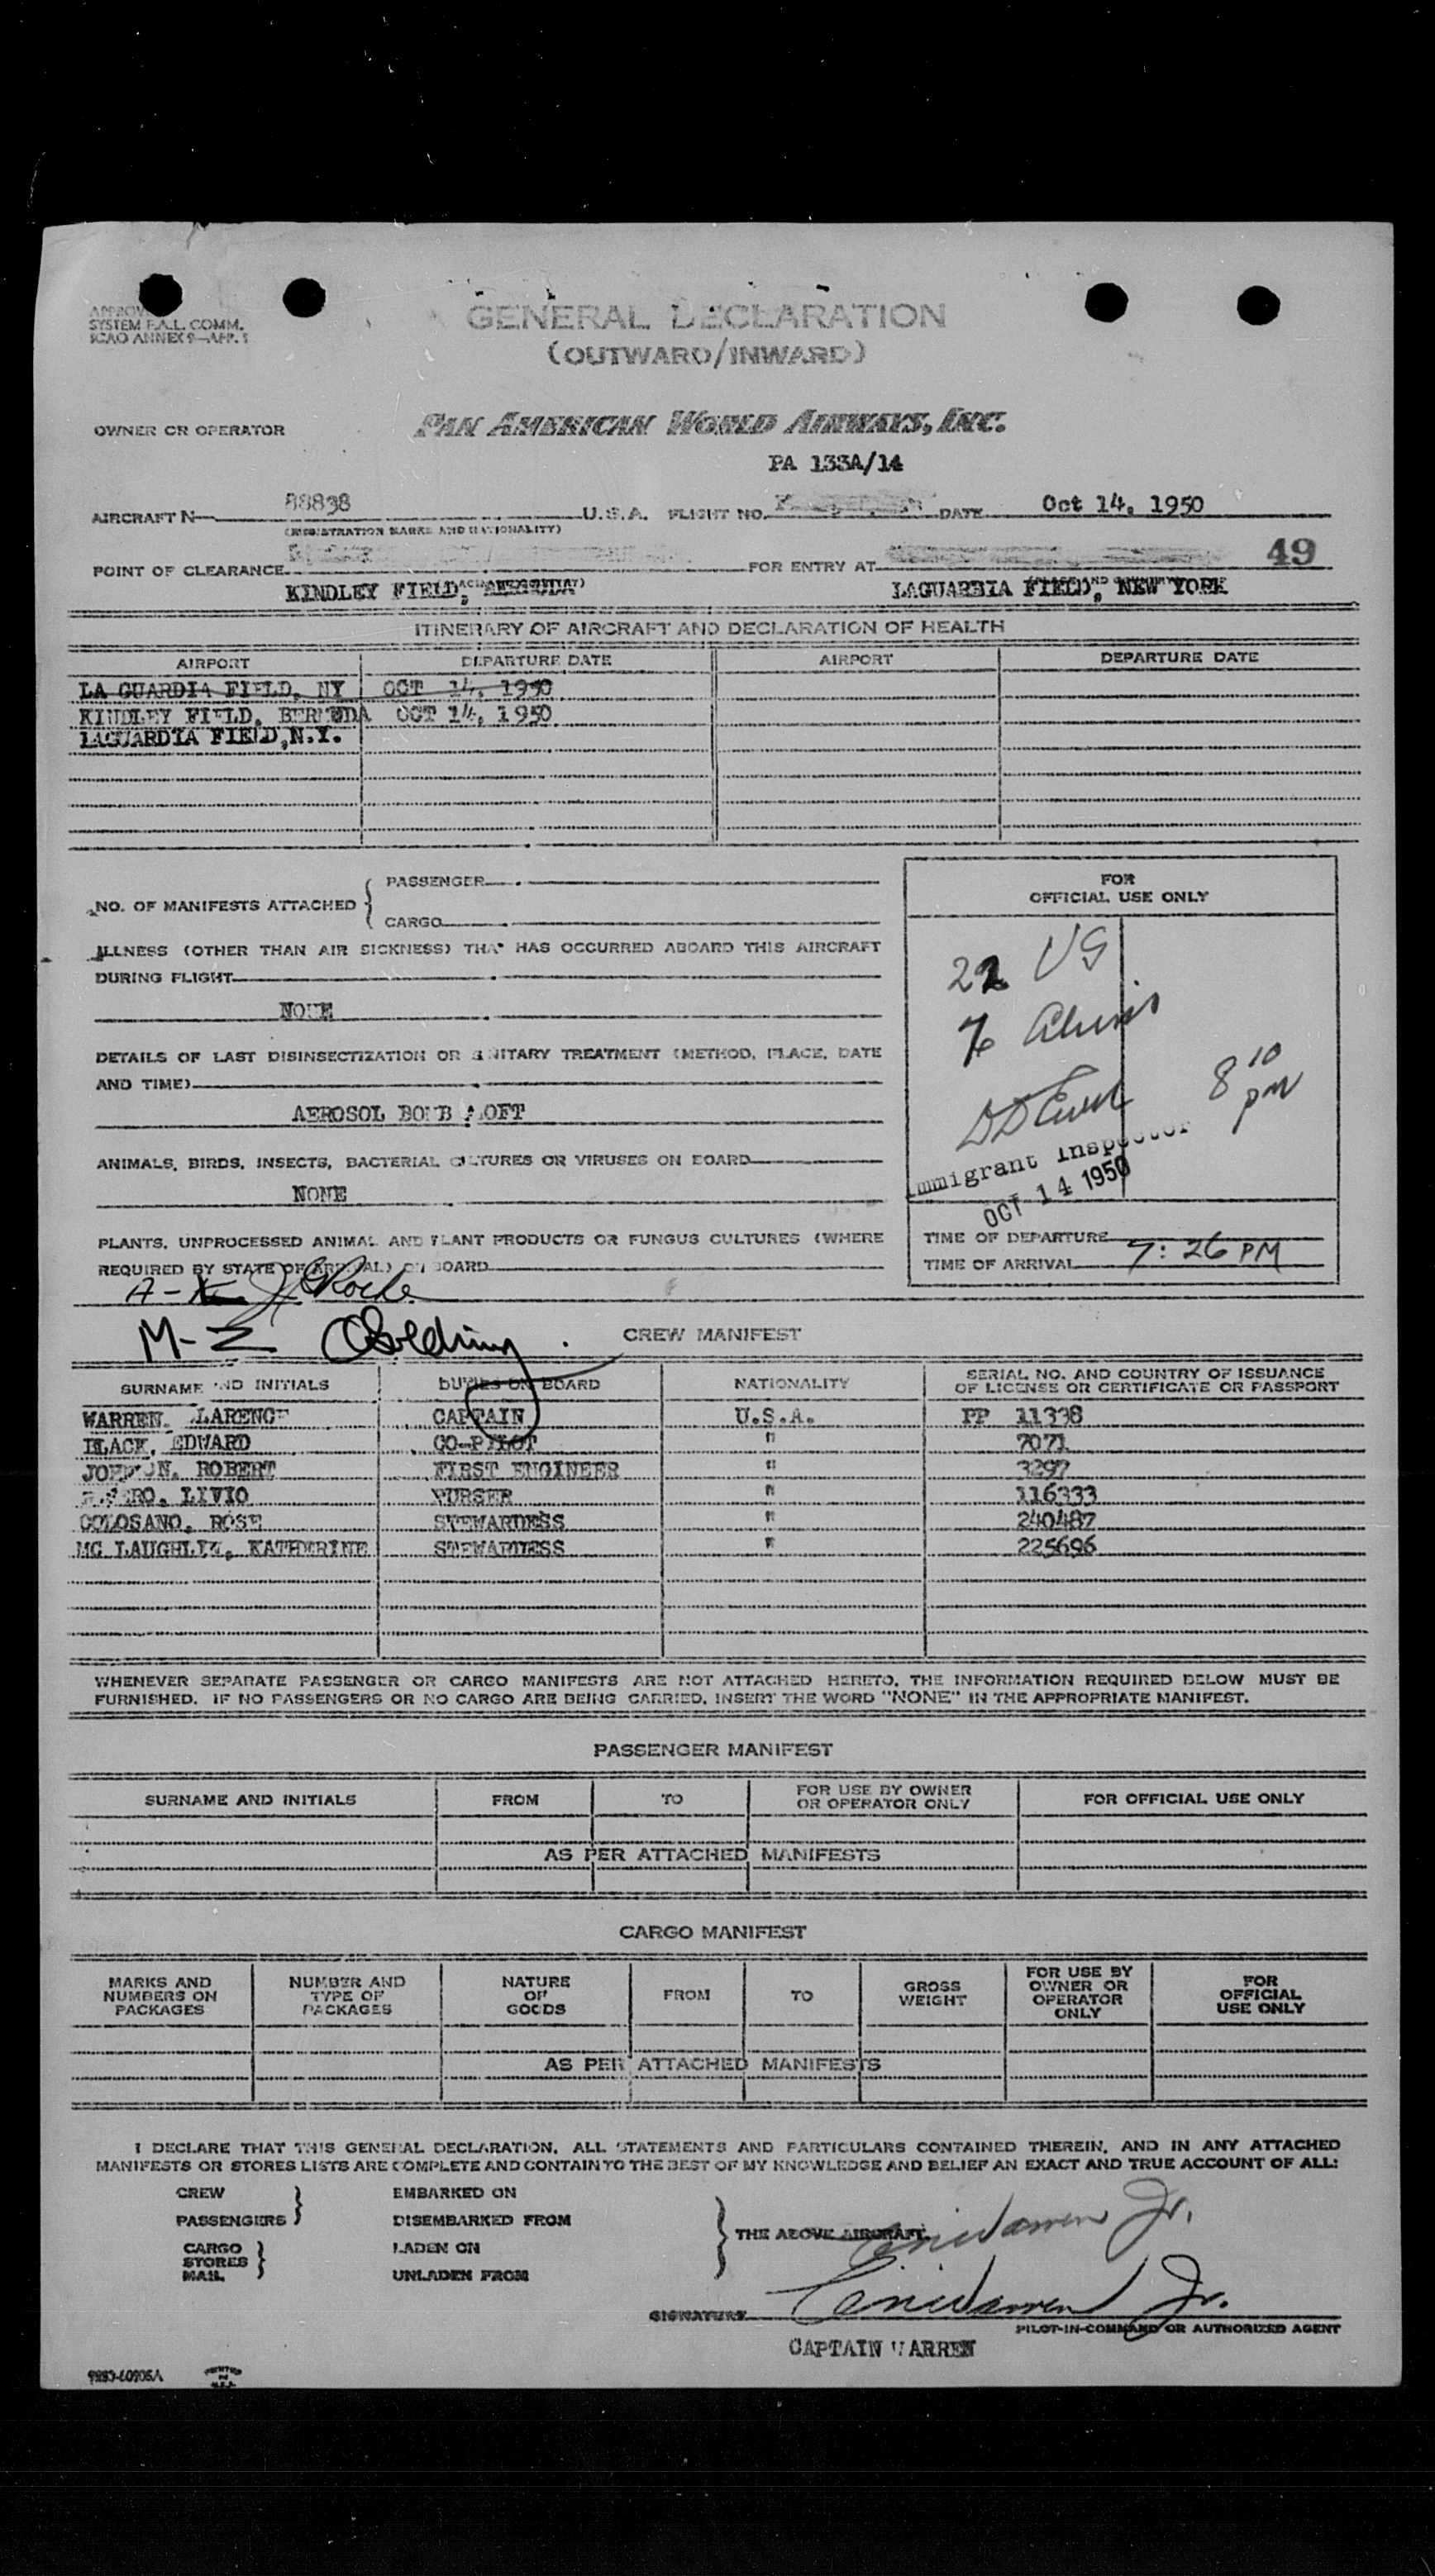 SYSTEM F.A.L. COMM.
ICAO ANNEX 9—APP. 1
GENERAL DECLARATION
(OUTWARD/INWARD)
OWNER OR OPERATOR PAN AMERICAN WORLD AIRWAYS, INC.
PA 133A/14
AIRCRAFT N 88838 U.S.A. FLIGHT NO. DATE Oct 14, 1950
(REGISTRATION MARKS AND NATIONALITY)
POINT OF CLEARANCE FOR ENTRY AT 49
KINDLEY FIELD, BERMUDA LAGUARDIA FIELD, NEW YORK
ITINERARY OF AIRCRAFT AND DECLARATION OF HEALTH
AIRPORT DEPARTURE DATE AIRPORT DEPARTURE DATE
LA GUARDIA FIELD, NY OCT 14, 1950
KINDLEY FIELD, BERMUDA OCT 14, 1950
LAGUARDIA FIELD, N.Y.
NO. OF MANIFESTS ATTACHED
PASSENGER
CARGO
ILLNESS (OTHER THAN AIR SICKNESS) THAT HAS OCCURRED ABOARD THIS AIRCRAFT
DURING FLIGHT
NONE
DETAILS OF LAST DISINSECTIZATION OR SANITARY TREATMENT (METHOD, PLACE, DATE
AND TIME)
AEROSOL BOMB ALOFT
ANIMALS, BIRDS, INSECTS, BACTERIAL CULTURES OR VIRUSES ON BOARD
NONE
PLANTS, UNPROCESSED ANIMAL AND PLANT PRODUCTS OR FUNGUS CULTURES (WHERE
REQUIRED BY STATE OF ARRIVAL) ON BOARD
FOR
OFFICIAL USE ONLY
22 US
7 Aliens
8 10 pm
Immigrant Inspector
OCT 14 1950
TIME OF DEPARTURE
TIME OF ARRIVAL 7:26 PM
A-K Roche
M-Z Golding
CREW MANIFEST
SURNAME AND INITIALS DUTIES ON BOARD NATIONALITY SERIAL NO. AND COUNTRY OF ISSUANCE
OF LICENSE OR CERTIFICATE OR PASSPORT
WARREN, CLARENCE CAPTAIN U.S.A. PP 11338
BLACK, EDWARD CO-PILOT " 7071
ROBERT FIRST ENGINEER " 3297
LIVIO PURSER " 116333
COLOSANO, ROSE STEWARDESS " 240487
MC LAUGHLIN, KATHERINE STEWARDESS " 225696
WHENEVER SEPARATE PASSENGER OR CARGO MANIFESTS ARE NOT ATTACHED HERETO, THE INFORMATION REQUIRED BELOW MUST BE
FURNISHED. IF NO PASSENGERS OR NO CARGO ARE BEING CARRIED, INSERT THE WORD "NONE" IN THE APPROPRIATE MANIFEST.
PASSENGER MANIFEST
SURNAME AND INITIALS FROM TO FOR USE BY OWNER OR OPERATOR ONLY FOR OFFICIAL USE ONLY
AS PER ATTACHED MANIFESTS
CARGO MANIFEST
MARKS AND NUMBERS ON PACKAGES NUMBER AND TYPE OF PACKAGES NATURE OF GOODS FROM TO GROSS WEIGHT FOR USE BY OWNER OR OPERATOR ONLY FOR OFFICIAL USE ONLY
AS PER ATTACHED MANIFESTS
I DECLARE THAT THIS GENERAL DECLARATION, ALL STATEMENTS AND PARTICULARS CONTAINED THEREIN, AND IN ANY ATTACHED
MANIFESTS OR STORES LISTS ARE COMPLETE AND CONTAIN TO THE BEST OF MY KNOWLEDGE AND BELIEF AN EXACT AND TRUE ACCOUNT OF ALL:
CREW EMBARKED ON
PASSENGERS DISEMBARKED FROM
THE ABOVE AIRCRAFT.
CARGO LADEN ON
STORES
MAIL UNLADEN FROM
Warren Jr.
SIGNATURE Warren Jr.
PILOT-IN-COMMAND OR AUTHORIZED AGENT
CAPTAIN WARREN
PRINTED
IN
U.S.A.